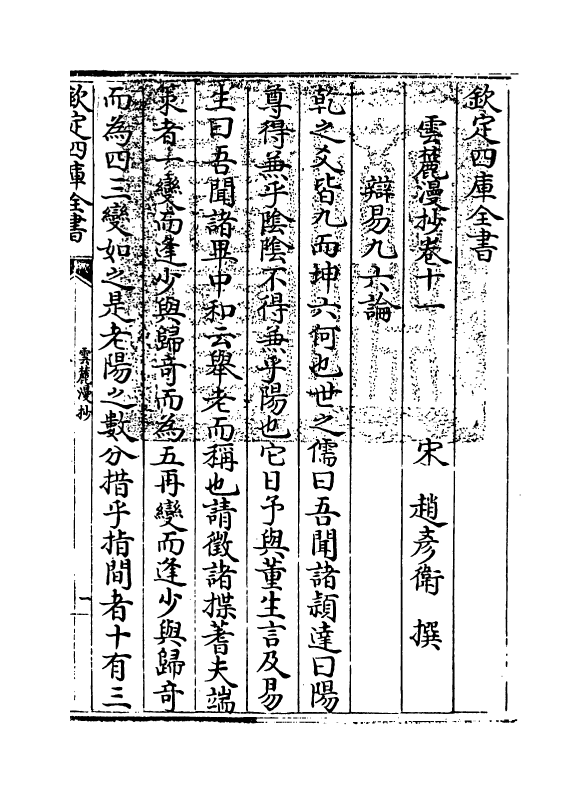 欽定四庫全書
雲麓漫抄卷十一
宋 趙彥衛 撰
辯易九六論
乾之爻皆九而坤六何也世之儒曰吾聞諸穎達曰陽
尊得兼乎陰陰不得兼乎陽也它日予與董生言及易
生曰吾聞諸畢中和云舉老而稱也請徵諸揲蓍夫端
策者一變而逢少與歸奇而為五再變而逢少與歸奇
而為四三變如之是老陽之數分措乎指間者十有三
欽定四庫全書
雲麓漫抄
一